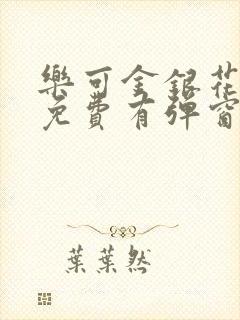 樂可金銀花
免費有彈窗
葉葉然